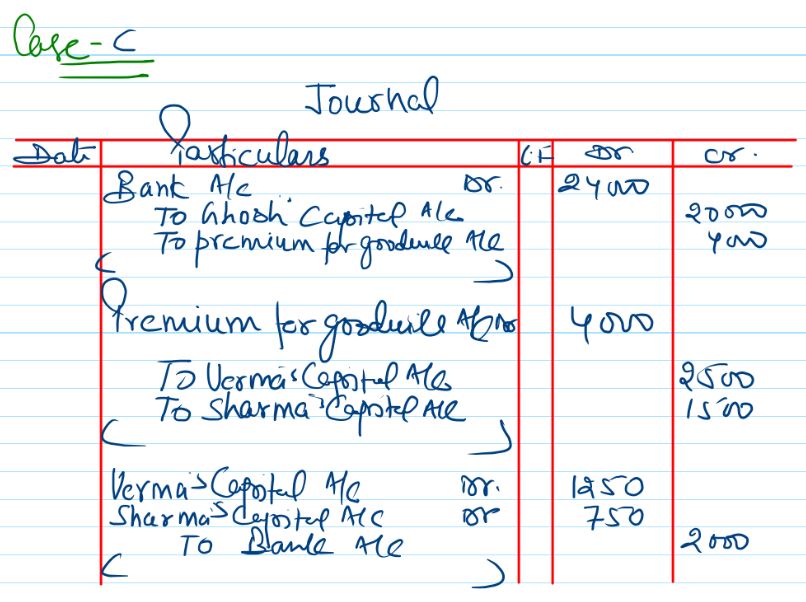 Case - C
Journal
Date Particulars L.F Dr Cr.
Bank A/c Dr. 24000
To Ghosh Capital A/c 20000
To premium for goodwill A/c 4000
Premium for goodwill A/c Dr 4000
To Verma's Capital A/c 2500
To Sharma's Capital A/c 1500
Verma's Capital A/c Dr. 1250
Sharma's Capital A/c Dr 750
To Bank A/c 2000